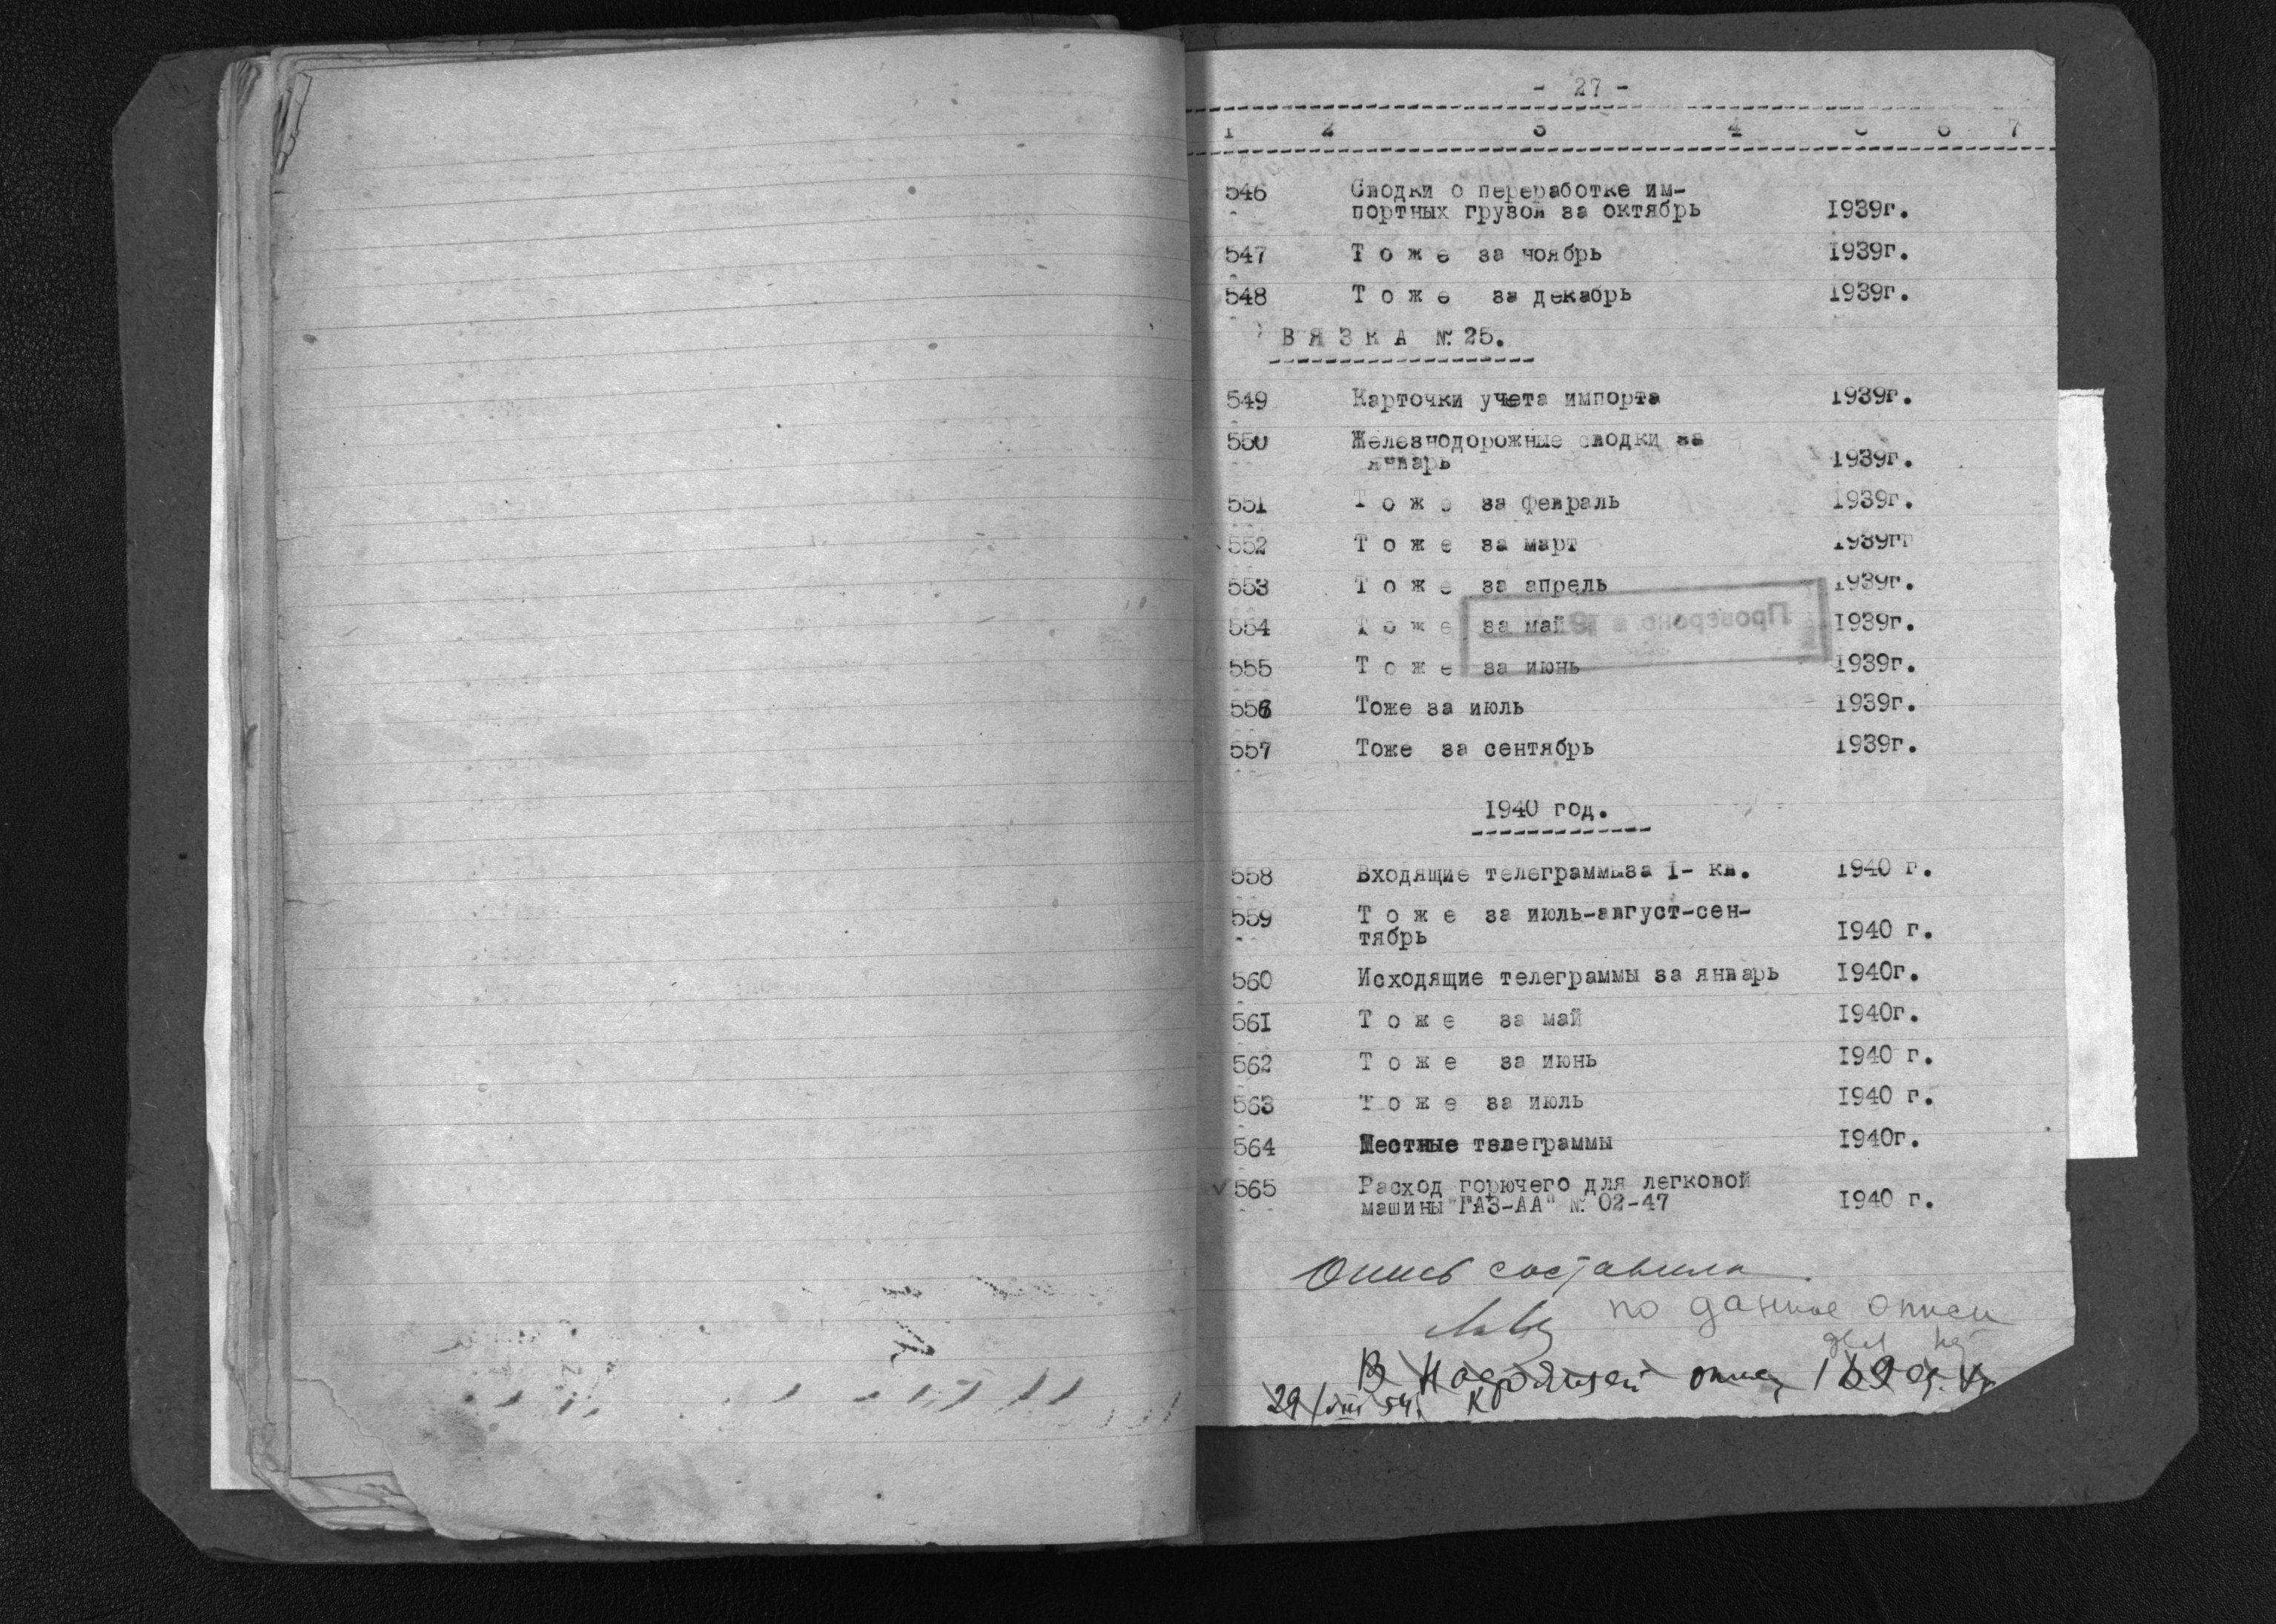 - 27 -
1 2 3 4 5 6 7
546 Сводки о переработке им-
портных грузов за октябрь 1939г.
547 Т о ж е за ноябрь 1939г.
548 Т о ж е за декабрь 1939г.
В Я З К А № 25.
549 Карточки учета импорта 1939г.
550 Железнодорожные сводки за
январь 1939г.
551 Т о ж е за февраль 1939г.
552 Т о ж е за март 1939гг
553 Т о ж е за апрель 1939г.
554 Т о ж е за май 1939г.
Проверено в 19
555 Т о ж е за июнь 1939г.
556 Тоже за июль 1939г.
557 Тоже за сентябрь 1939г.
1940 год.
558 Входящие телеграммыза I- кв. 1940 г.
559 Т о ж е за июль-август-сен-
тябрь 1940 г.
560 Исходящие телеграммы за январь 1940г.
561 Т о ж е за май 1940г.
562 Т о ж е за июнь 1940 г.
563 Т о ж е за июль 1940 г.
564 Местные телеграммы 1940г.
565 Расход горючего для легковой
машины "ГАЗ-АА" № 02-47 1940 г.
Опись составила
по данное описи
дел нет
В настоящей описи
29/VIII 54.